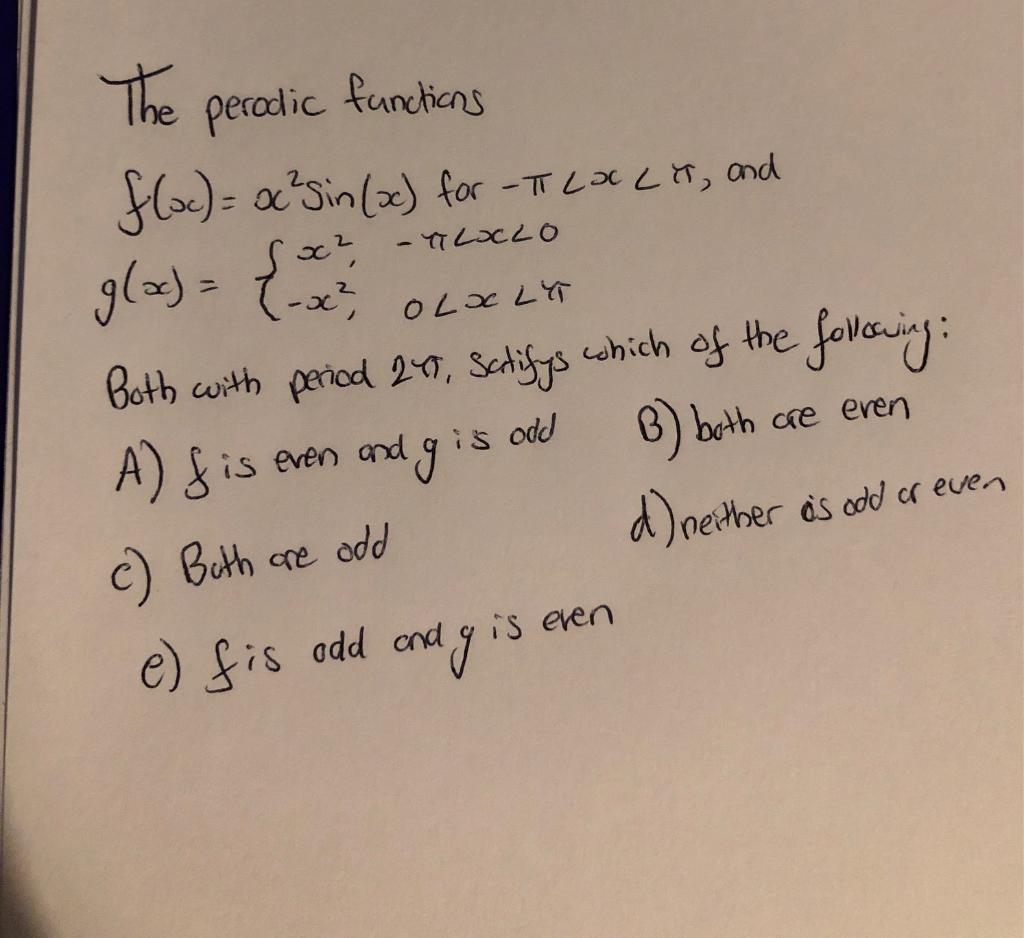 The perodic functions
f(x) = x²sin(x) for -π<x<π, and
g(x) = { x², -π<x<0
{ -x², 0<x<π
Both with period 2π, satifys which of the following:
A) f is even and g is odd B) both are even
c) Both are odd d) neither is odd or even
e) f is odd and g is even